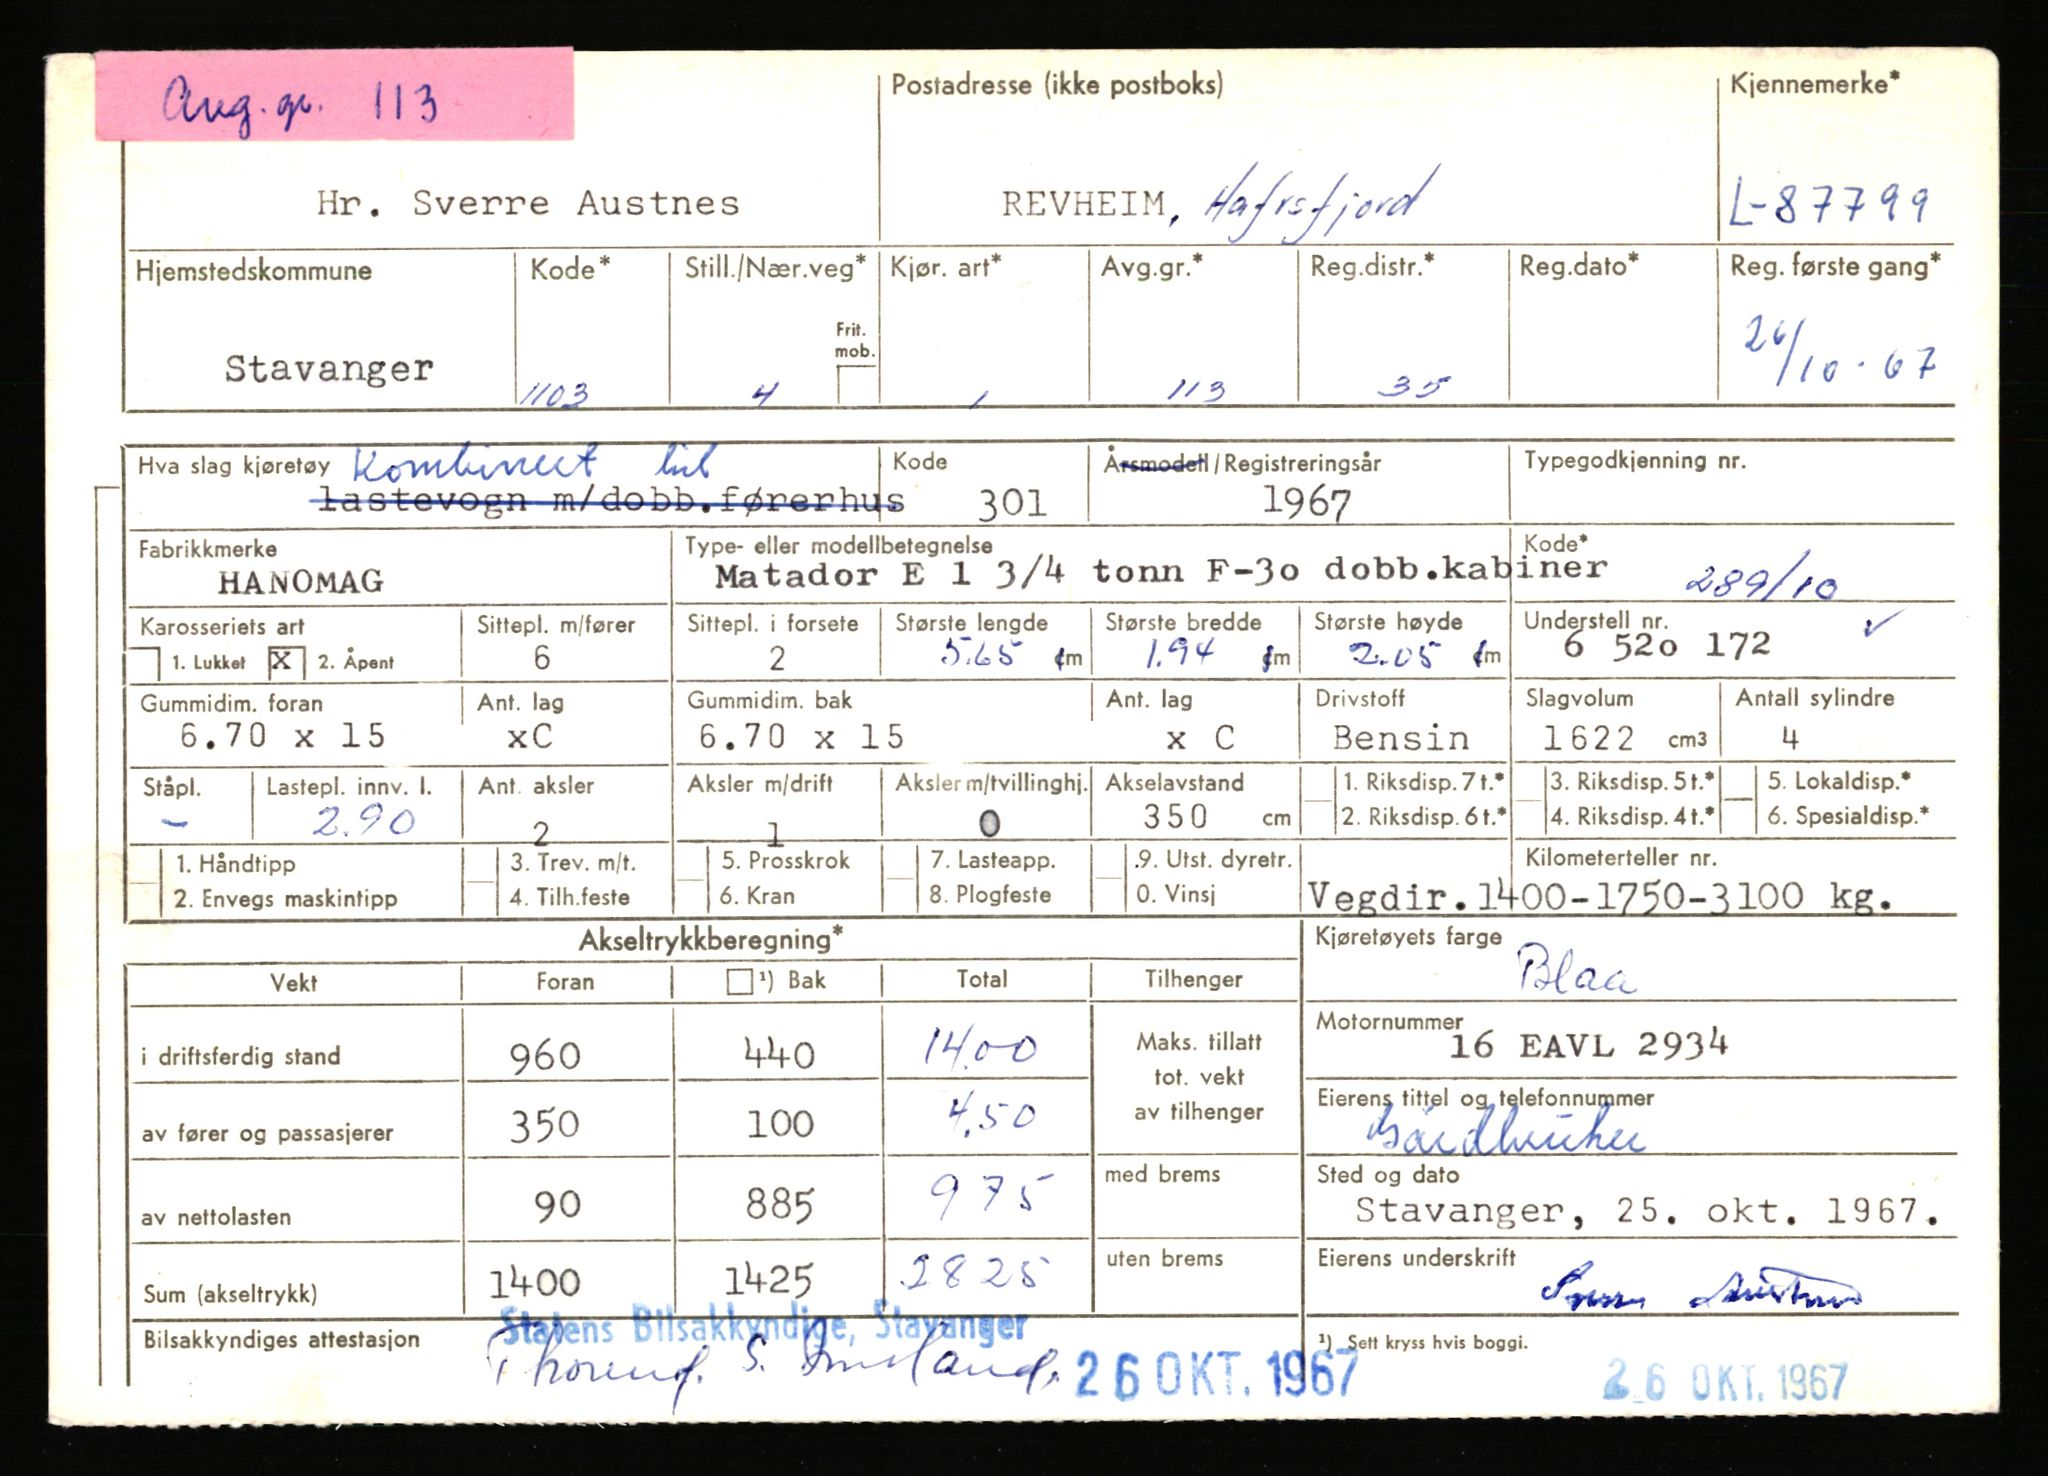 Avg. gr. 113
Postadresse (ikke postboks)
Kjennemerke*
Hr. Sverre Austnes
REVHEIM, Hafrsfjord
L-87799
Hjemstedskommune Kode* Still./Nær.veg* Kjør. art* Avg.gr.* Reg.distr.* Reg.dato* Reg. første gang*
Frit. mob.
Stavanger 1103 4 1 113 35 26/10-67
Hva slag kjøretøy Kombinert bil Kode Årsmodell/Registreringsår Typegodkjenning nr.
lastevogn m/dobb.førerhus 301 1967
Fabrikkmerke Type- eller modellbetegnelse Kode*
HANOMAG Matador E 1 3/4 tonn F-3o dobb.kabiner 289/10
Karosseriets art Sittepl. m/fører Sittepl. i forsete Største lengde Største bredde Største høyde Understell nr.
1. Lukket X 2. Åpent 6 2 5.65 cm 1.94 cm 2.05 cm 6 52o 172 ✓
Gummidim. foran Ant. lag Gummidim. bak Ant. lag Drivstoff Slagvolum Antall sylindre
6.70 x 15 xC 6.70 x 15 x C Bensin 1622 cm3 4
Ståpl. Lastepl. innv. l. Ant. aksler Aksler m/drift Aksler m/tvillinghj. Akselavstand 1. Riksdisp. 7 t.* 3. Riksdisp. 5 t.* 5. Lokaldisp.*
- 2.90 2 1 0 350 cm 2. Riksdisp. 6 t.* 4. Riksdisp. 4 t.* 6. Spesialdisp.*
1. Håndtipp 3. Trev. m/t. 5. Prosskrok 7. Lasteapp. .9. Utst. dyretr. Kilometerteller nr.
2. Envegs maskintipp 4. Tilh.feste 6. Kran 8. Plogfeste 0. Vinsj Vegdir.1400-1750-3100 kg.
Akseltrykkberegning* Kjøretøyets farge
Vekt Foran ¹) Bak Total Tilhenger Blaa
i driftsferdig stand 960 440 14.00 Maks. tillatt tot. vekt av tilhenger
Motornummer
16 EAVL 2934
av fører og passasjerer 350 100 4.50
Eierens tittel og telefonnummer
Gårdbruker
av nettolasten 90 885 975 med brems
Sted og dato
Stavanger, 25. okt. 1967.
Sum (akseltrykk) 1400 1425 2825 uten brems
Eierens underskrift
Sverre Austnes
Bilsakkyndiges attestasjon
Statens Bilsakkyndige, Stavanger
26 OKT. 1967
¹) Sett kryss hvis boggi.
26 OKT. 1967